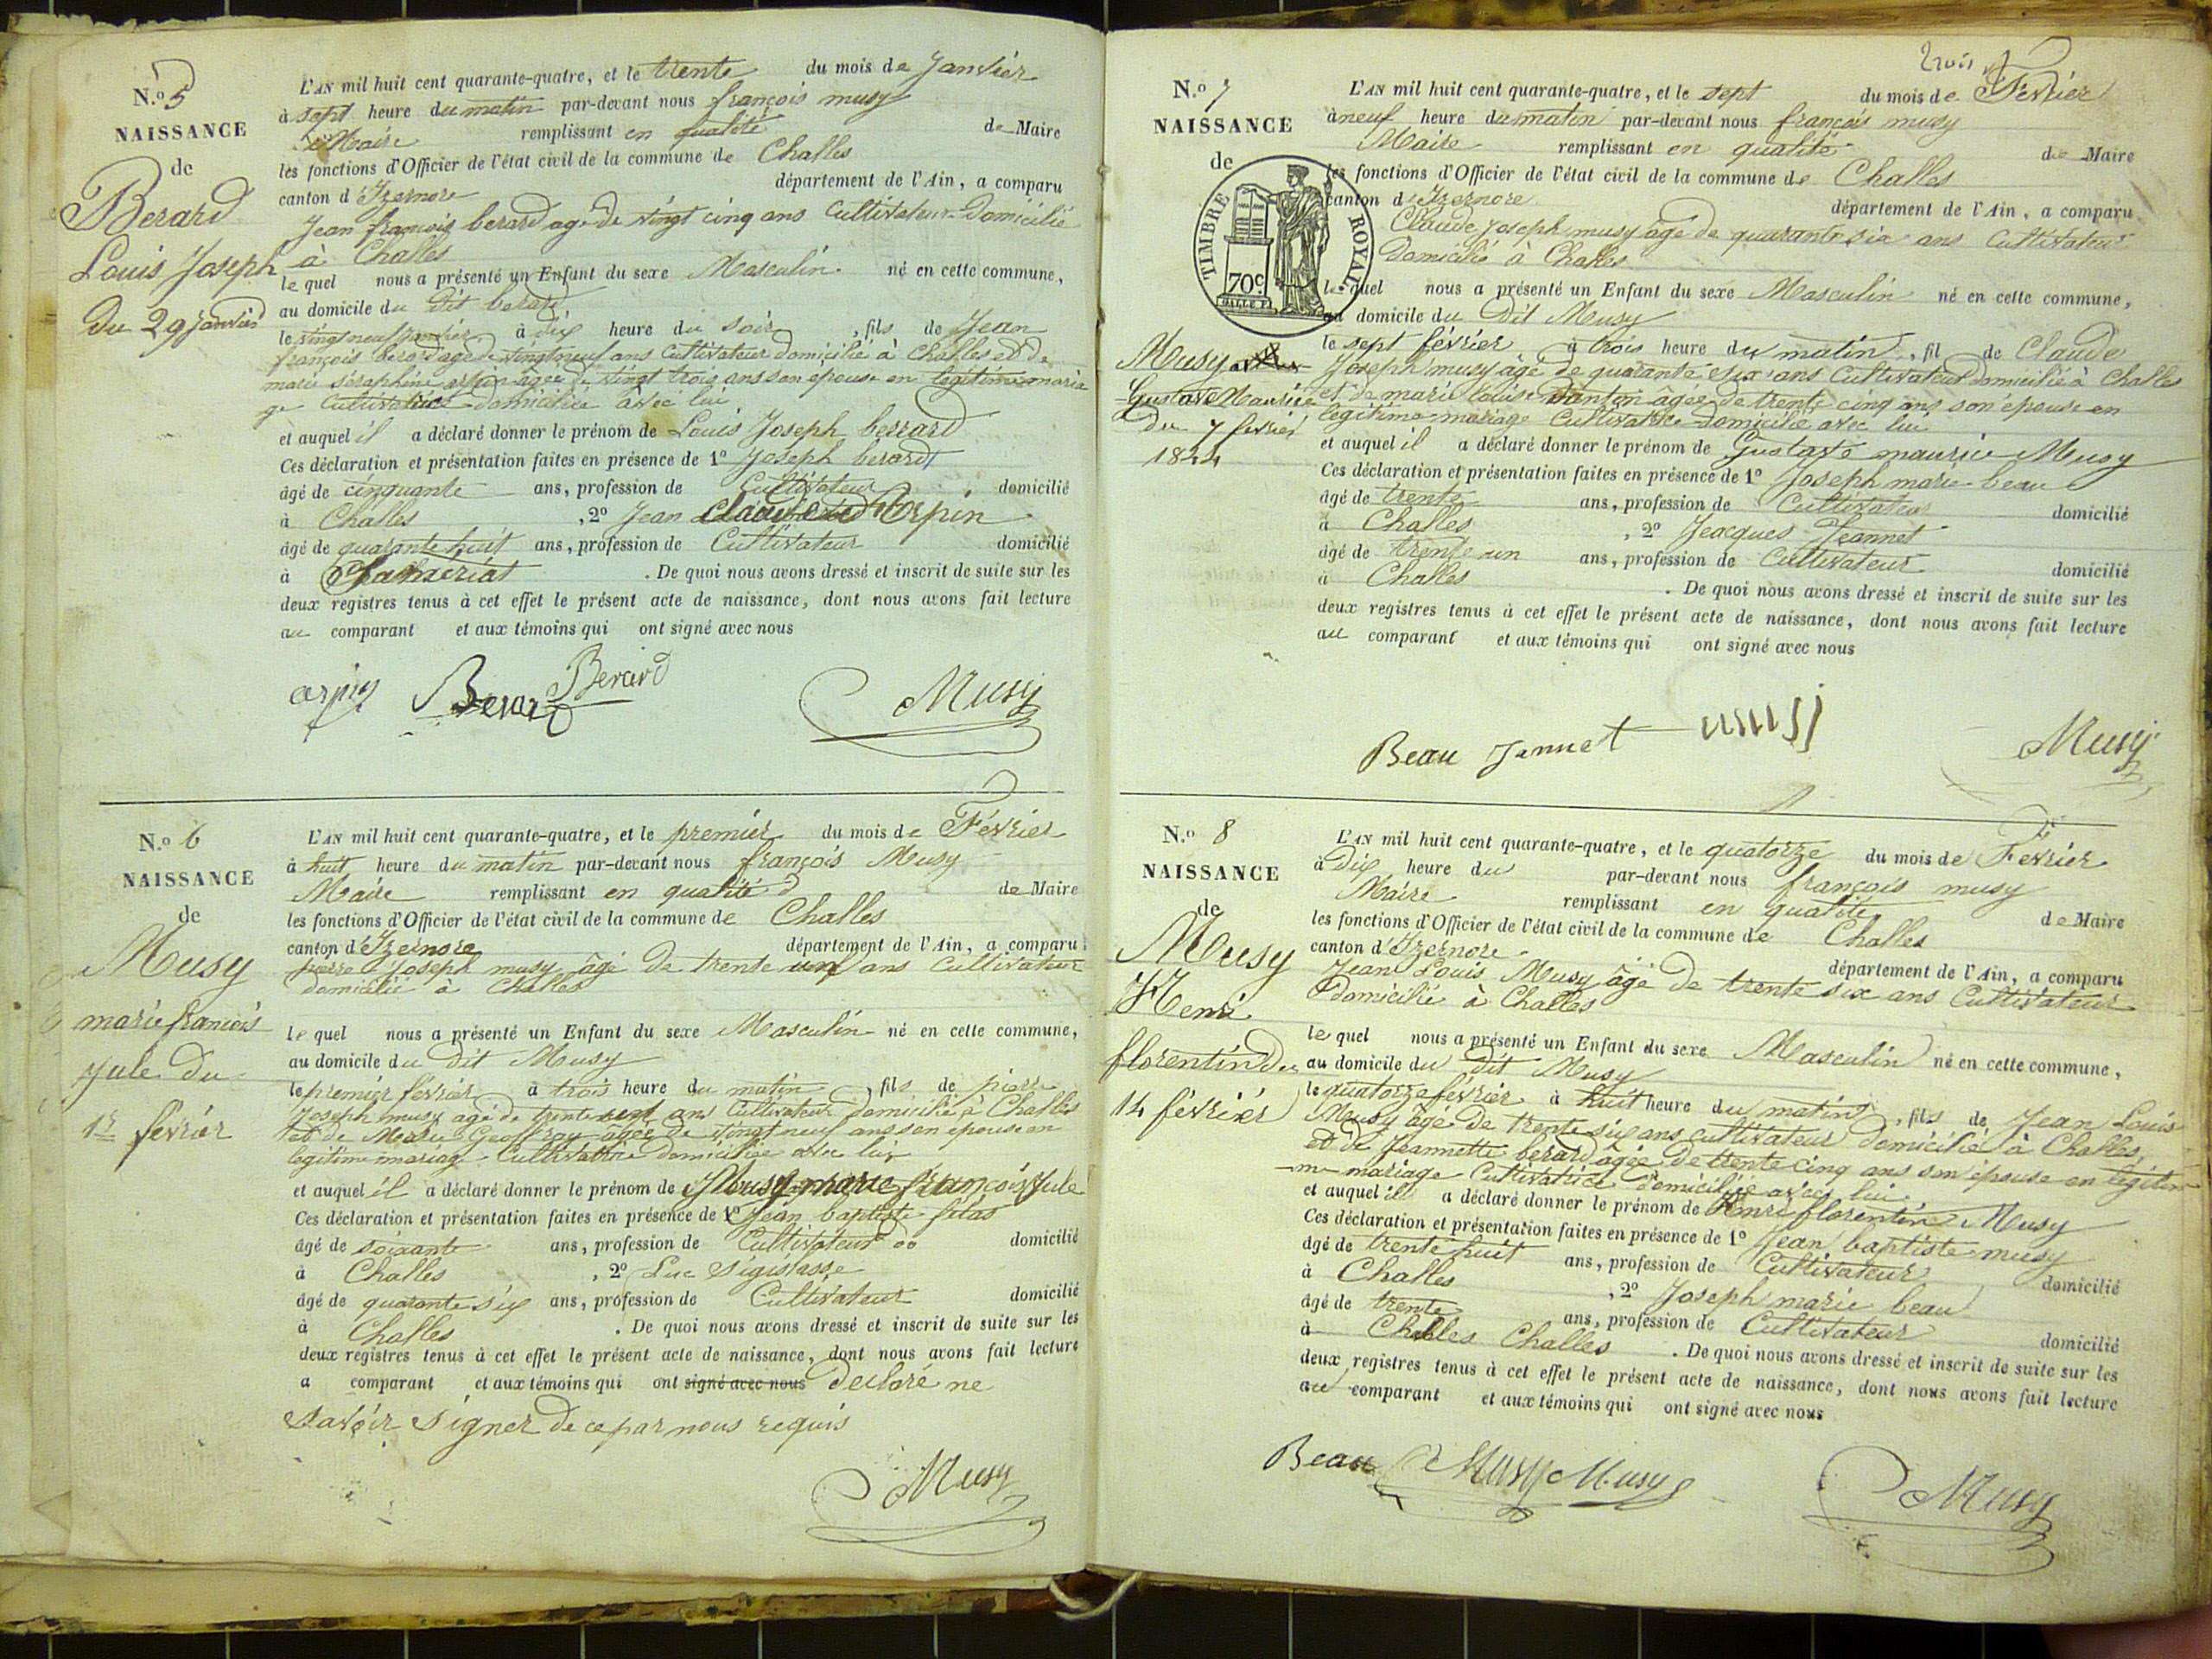 N.º 5
NAISSANCE
de
Berard
Louis Joseph
du 29 janvier
L'AN mil huit cent quarante-quatre, et le trente du mois de Janvier
à sept heure du matin par-devant nous françois musy
Maire remplissant en qualité de Maire
les fonctions d'Officier de l'état civil de la commune de Challes
canton d'Izernore département de l'Ain, a comparu
Jean françois berard age de vingt cinq ans Cultivateur Domicilié
à Challes
lequel nous a présenté un Enfant du sexe Masculin né en cette commune,
au domicile du dit berard
le vingt neuf janvier à dix heure du soir, fils de Jean
françois berard age de vingt neuf ans Cultivateur domicilié à Challes et de
marie séraphine arpin âgée de vingt trois ans son épouse en legitime maria
ge Cultivatrice domiciliée avec lui
et auquel il a déclaré donner le prénom de Louis Joseph berrard
Ces déclaration et présentation faites en présence de 1º Joseph berard
âgé de cinquante ans, profession de Cultivateur domicilié
à Challes, 2º Jean Claude Arpin
âgé de quarante huit ans, profession de Cultivateur domicilié
à Chamériat. De quoi nous avons dressé et inscrit de suite sur les
deux registres tenus à cet effet le présent acte de naissance, dont nous avons fait lecture
au comparant et aux témoins qui ont signé avec nous
arpin Berard Berard Musy
N.º 6
NAISSANCE
de
Musy
marie francois
Jule du
1r février
L'AN mil huit cent quarante-quatre, et le premier du mois de Février
à huit heure du matin par-devant nous françois Musy
Maire remplissant en qualité de Maire
les fonctions d'Officier de l'état civil de la commune de Challes
canton d'Izernore département de l'Ain, a comparu
pierre Joseph musy âgé de trente un ans Cultivateur
domicilié à Challes
lequel nous a présenté un Enfant du sexe Masculin né en cette commune,
au domicile du dit Musy
le premier février à trois heure du matin, fils de pierre
Joseph musy agé de trente un ans Cultivateur domicilié à Challes
et de Marie Geoffray âgée de vingt neuf ans son épouse en
legitime mariage Cultivatrice domiciliée avec lui
et auquel il a déclaré donner le prénom de Musy marie françois Jule
Ces déclaration et présentation faites en présence de 1º Jean baptiste
âgé de soixante ans, profession de Cultivateur domicilié
à Challes, 2º Luc
âgé de quarante six ans, profession de Cultivateur domicilié
à Challes. De quoi nous avons dressé et inscrit de suite sur les
deux registres tenus à cet effet le présent acte de naissance, dont nous avons fait lecture
a comparant et aux témoins qui ont signé avec nous declaré ne
savoir signer de ce par nous requis
Musy
trois
N.º 7
NAISSANCE
de
TIMBRE ROYAL
70c
Musy
Gustave Maurice
du 7 fevrier
1844
L'AN mil huit cent quarante-quatre, et le sept du mois de Février
à neuf heure du matin par-devant nous françois musy
Maire remplissant en qualité de Maire
les fonctions d'Officier de l'état civil de la commune de Challes
canton d'Izernore département de l'Ain, a comparu
Claude Joseph musy agé de quarante six ans Cultivateur
Domicilié à Challes
lequel nous a présenté un Enfant du sexe Masculin né en cette commune,
au domicile du Dit Musy
le sept février à trois heure du matin, fil de Claude
Joseph musy âgé de quarante six ans Cultivateur domicilié à Challes
et de marie louise âgée de trente cinq ans son épouse en
legitime mariage Cultivatrice domicilié avec lui
et auquel il a déclaré donner le prénom de Gustave maurice Musy
Ces déclaration et présentation faites en présence de 1º Joseph marie beau
âgé de trente ans, profession de Cultivateur domicilié
à Challes, 2º Jeacques Jeannet
âgé de trente un ans, profession de Cultivateur domicilié
à Challes. De quoi nous avons dressé et inscrit de suite sur les
deux registres tenus à cet effet le présent acte de naissance, dont nous avons fait lecture
au comparant et aux témoins qui ont signé avec nous
Beau Jannet Musy
N.º 8
NAISSANCE
de
Musy
Henri
florentin du
14 février
L'AN mil huit cent quarante-quatre, et le quatorze du mois de Fevrier
à Dix heure du par-devant nous françois musy
Maire remplissant en qualité de Maire
les fonctions d'Officier de l'état civil de la commune de Challes
canton d'Izernore département de l'Ain, a comparu
Jean Louis Musy âgé de trente six ans Cultivateur
Domicilié à Challes
lequel nous a présenté un Enfant du sexe Masculin né en cette commune,
au domicile du dit Musy
le quatorze février à huit heure du matin, fils de Jean Louis
Musy âgé de trente six ans cultivateur domicilié à Challes,
et de Jeannette berard âgée de trente cinq ans son épouse en légiti
me mariage Cultivatrice domiciliée avec lui
et auquel il a déclaré donner le prénom de Henri florentin Musy
Ces déclaration et présentation faites en présence de 1º Jean baptiste musy
âgé de trente huit ans, profession de Cultivateur domicilié
à Challes, 2º Joseph marie beau
âgé de trente ans, profession de Cultivateur domicilié
à Challes Challes. De quoi nous avons dressé et inscrit de suite sur les
deux registres tenus à cet effet le présent acte de naissance, dont nous avons fait lecture
au comparant et aux témoins qui ont signé avec nous
Beau Musy Musy Musy